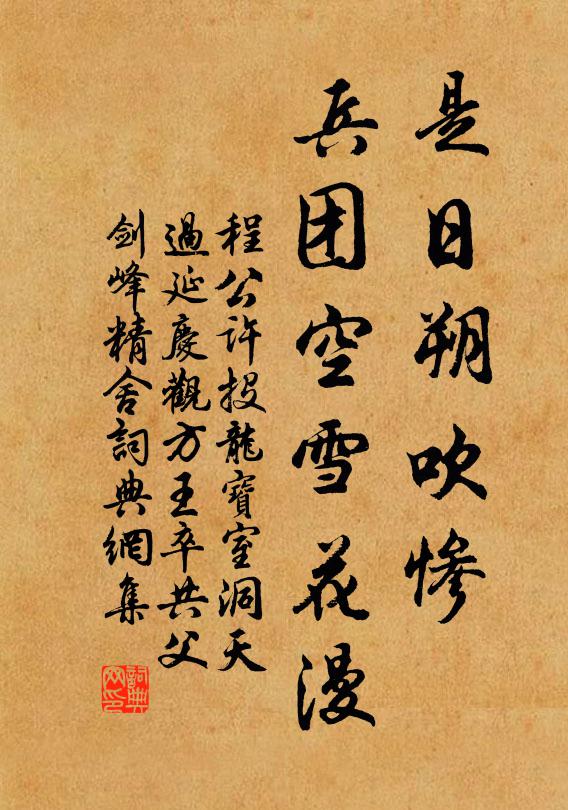 是日朔吹慘
兵团空雪花漫
程公许投龍寶室洞天
過延慶觀方王卒共父
劍峰精舍詞典網集
詞典網印